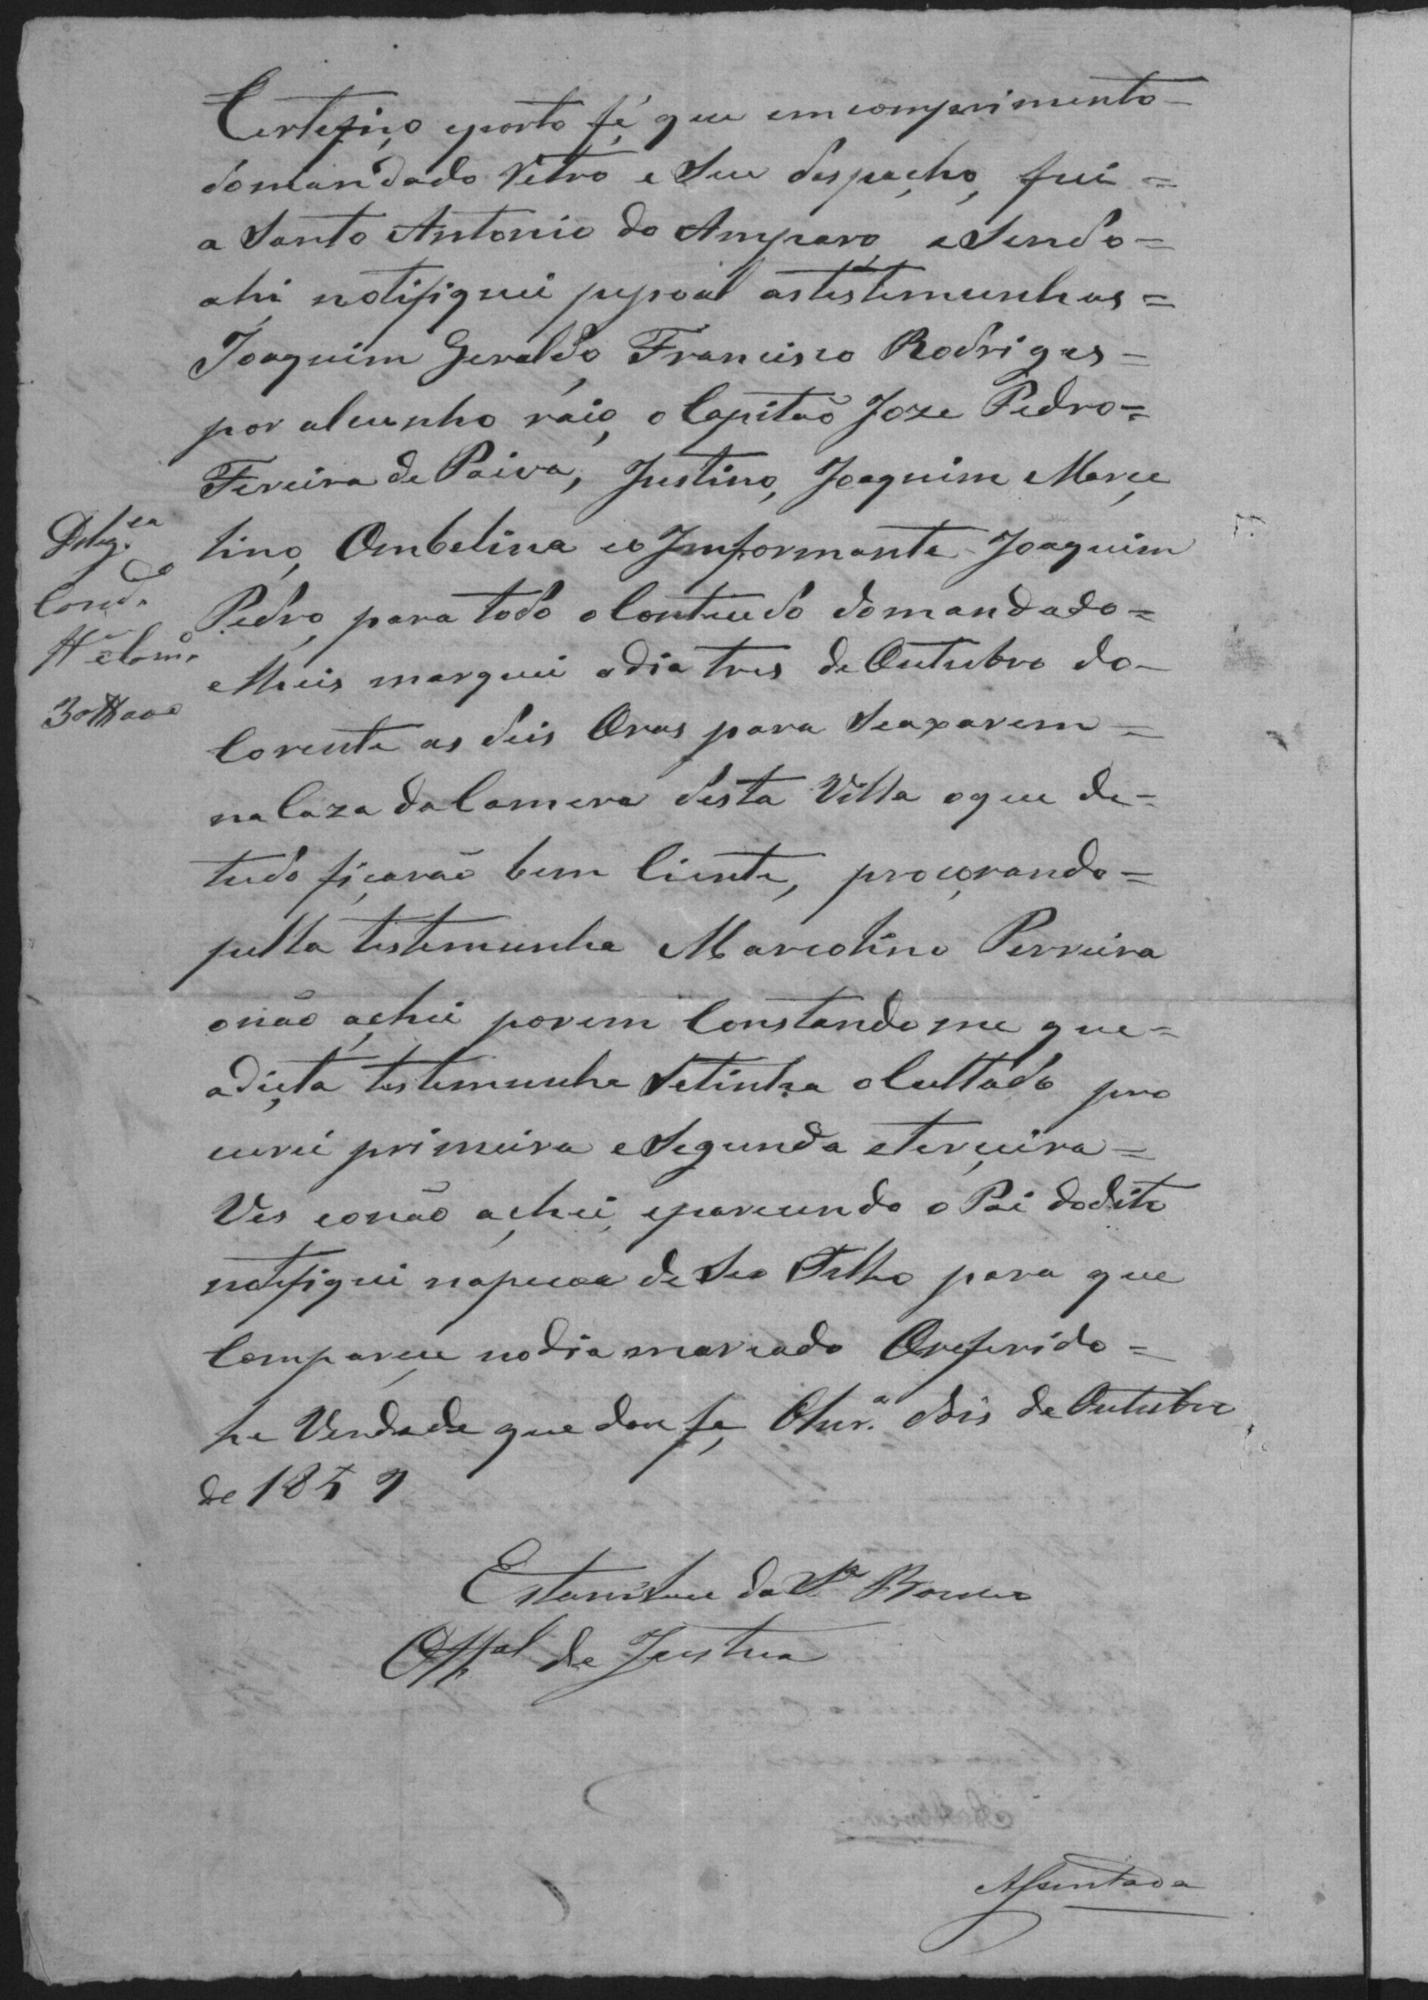 Certefiço eporto fé que emcomprimento-
domandado retro e Seu despacho, fui =
a Santo Antonio do Amparo eSendo=
ahi notifiquei pesoal astestemunhas=
Joaquim Geraldo, Francisco Rodriges-
por alcunho raio, oCapitão Joze Pedro=
Fereira de Paiva, Justino, Joaquim Marce
lino, Ombelina eo Imformante Joaquim
Pedro, para todo oContiudo domandado=
elheis marquei odia tres deOutubro do-
Corente as deis Oras para Seaxarem =
naCaza daCamera desta Villa oque de=
tudo ficarão bem Ciente, procorando=
pella testemunha Marcolino Perreira
onão achei porem Constandome que=
adicta testemunha Setinha oCultado pro
curei primeira eSegunda eterceira=
Ves eonão achei, eparecendo o Pai dodito
notifiquei napecoa de Seo Filho para que
Comparece nodia marcado Oreferido =
he Verdade que dou fe, Olivr.ª dois de Outubro
de 1859
Delig.cia
Cond.
30#000
Estanislau da S.ª
Offal de Justica
Assentada